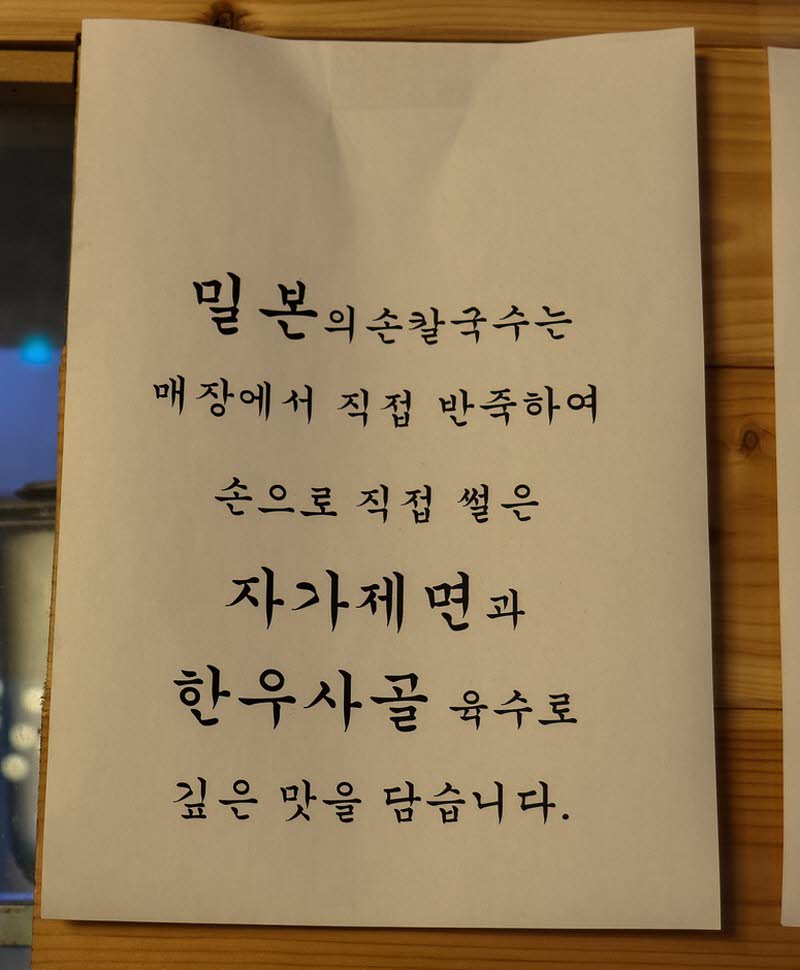 밀본의손칼국수는
매장에서 직접 반죽하여
손으로 직접 썰은
자가제면과
한우사골 육수로
깊은 맛을 담습니다.